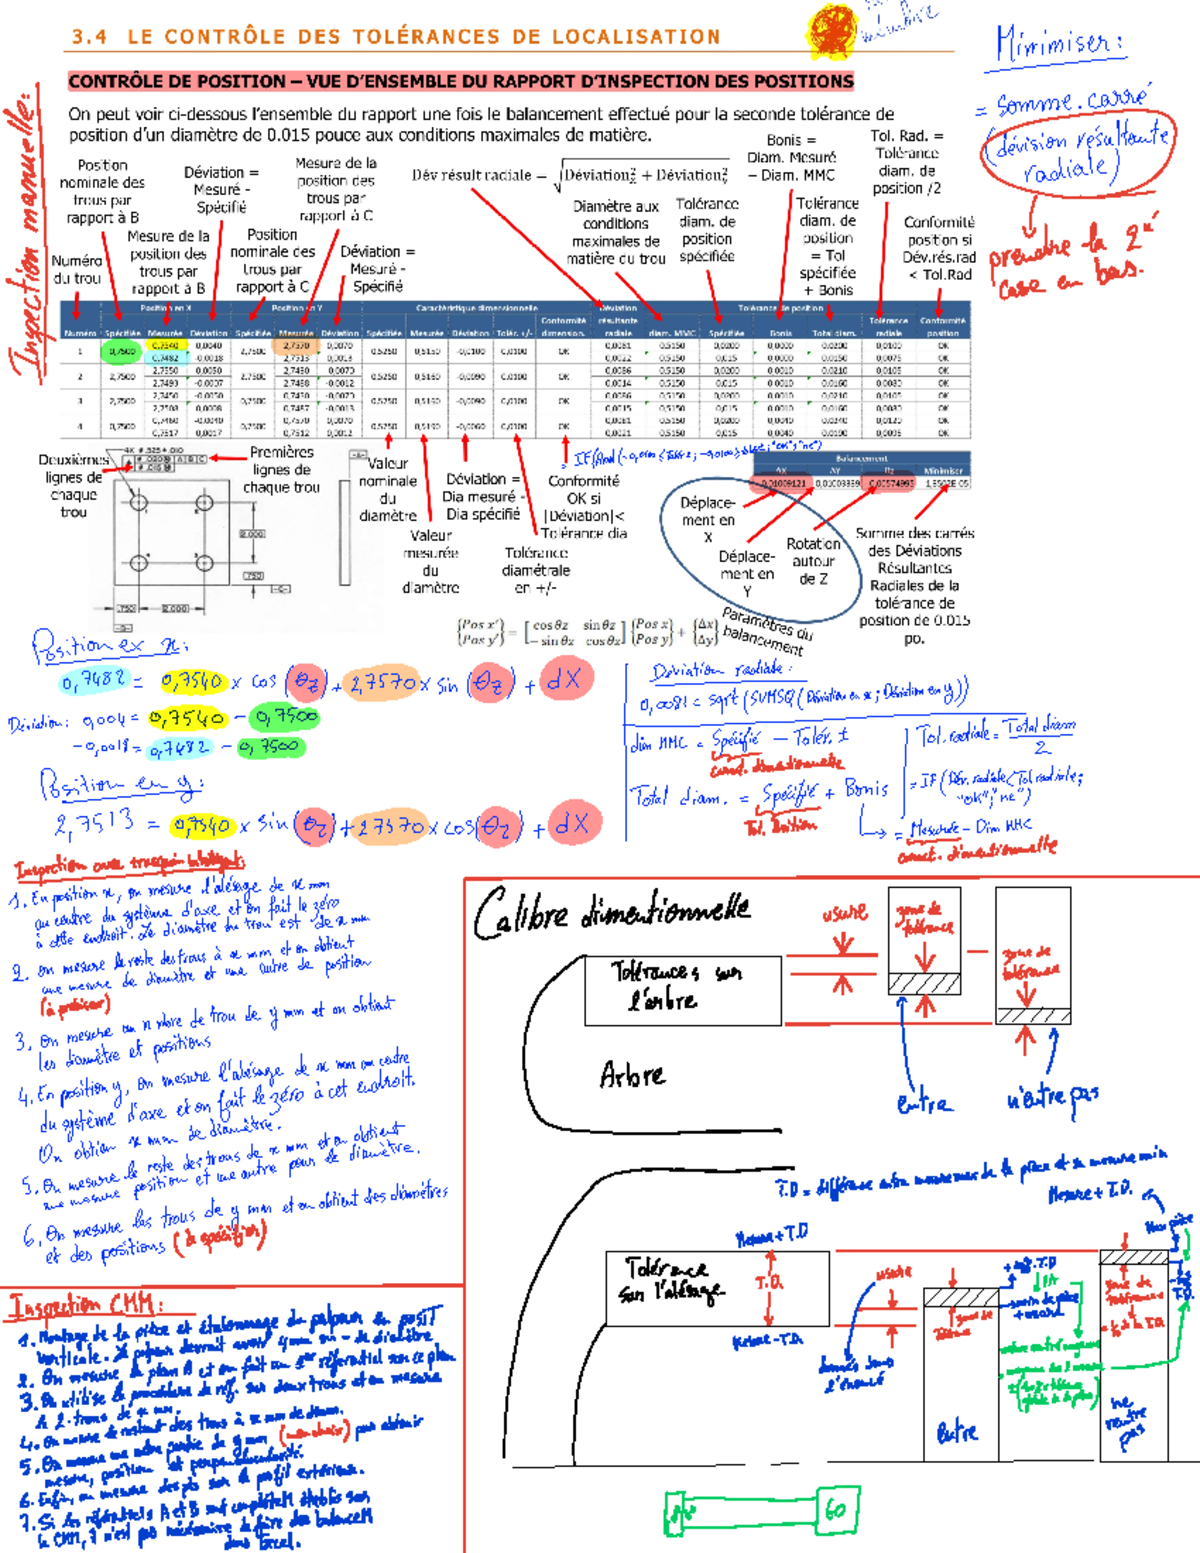 3.4 LE CONTRÔLE DES TOLÉRANCES DE LOCALISATION
CONTRÔLE DE POSITION – VUE D'ENSEMBLE DU RAPPORT D'INSPECTION DES POSITIONS
On peut voir ci-dessous l'ensemble du rapport une fois le balancement effectué pour la seconde tolérance de
position d'un diamètre de 0.015 pouce aux conditions maximales de matière.
Minimiser:
= Somme.carré
(dévision résultante
radiale)
prendre la 2
case en bas.
Inspection manuelle:
Position
nominale des
trous par
rapport à B
Déviation =
Mesuré -
Spécifié
Mesure de la
position des
trous par
rapport à C
Dév résult radiale = √Déviation²x + Déviation²y
Bonis =
Diam. Mesuré
– Diam. MMC
Tol. Rad. =
Tolérance
diam. de
position /2
Numéro
du trou
Mesure de la
position des
trous par
rapport à B
Position
nominale des
trous par
rapport à C
Déviation =
Mesuré -
Spécifié
Diamètre aux
conditions
maximales de
matière du trou
Tolérance
diam. de
position
spécifiée
Tolérance
diam. de
position
= Tol
spécifiée
+ Bonis
Conformité
position si
Dév.rés.rad
< Tol.Rad
Position en X Position en Y Caractéristique dimensionnelle Déviation Tolérance de position
Conformité résultante Tolérance Conformité
Numéro Spécifiée Mesurée Déviation Spécifiée Mesurée Déviation Spécifiée Mesurée Déviation Tolér. +/- dimension. radiale diam. MMC Spécifiée Bonis Total diam. radiale position
1 0,7500 0,7540 0,0040 2,7500 2,7570 0,0070 0.5250 0,5150 -0,0100 0,0100 OK 0,0081 0.5150 0,0200 0,0000 0.0200 0,0100 OK
0,7482 -0.0018 2,7513 0,0013 0,0022 0.5150 0,015 0,0000 0.0150 0,0075 OK
2 2,7500 2,7550 0,0050 2,7500 2,7430 0,0070 0.5250 0,5160 -0,0090 0,0100 OK 0,0086 0.5150 0,0200 0,0010 0.0210 0,0105 OK
2,7493 -0.0007 2,7488 -0.0012 0,0014 0.5150 0,015 0,0010 0.0160 0,0080 OK
3 2,7500 2,7450 -0.0050 0,7500 0,7430 -0.0070 0.5250 0,5160 -0,0090 0,0100 OK 0,0086 0.5150 0,0200 0,0010 0.0210 0,0105 OK
2,7508 0,0008 0,7487 -0.0013 0,0015 0.5150 0,015 0,0010 0.0160 0,0080 OK
4 0,7500 0,7460 -0.0040 0,7500 0,7570 0,0070 0.5250 0,5190 -0,0060 0,0100 OK 0,0081 0.5150 0,0200 0,0040 0.0240 0,0120 OK
0,7517 0,0017 0,7512 0,0012 0,0021 0.5150 0,015 0,0040 0.0190 0,0095 OK
Deuxièmes
lignes de
chaque
trou
Premières
lignes de
chaque trou
2.000
.750
.750
2.000
Valeur
nominale
du
diamètre
Déviation =
Dia mesuré -
Dia spécifié
Conformité
OK si
|Déviation|<
Tolérance dia
Valeur
mesurée
du
diamètre
Tolérance
diamétrale
en +/-
Balancement
ΔX ΔY θz Minimiser
-0,01009121 0,01003339 0,00574995
Déplace-
ment en
X
Déplace-
ment en
Y
Rotation
autour
de Z
Paramètres du
balancement
Somme des carrés
des Déviations
Résultantes
Radiales de la
tolérance de
position de 0.015
po.
{Pos x' Pos y'} = [cos θz sin θz −sin θz cos θz] {Pos x Pos y} + {Δx Δy}
Position ex x:
0,7482 = 0,7540 x cos (θz) + 2,7570 x sin (θz) + dX
Déviation: 0,004 = 0,7540 - 0,7500
-0,0018 = 0,7482 - 0,7500
Position en y:
2,7513 = 0,7540 x sin (θz) + 2,7570 x cos (θz) + dX
Déviation radiale:
0,0081 = sqrt (SUMSQ (Déviation en x ; Déviation en y))
dim MMC = Spécifié - Tolér. ±
caract. dimentionnelle
Total diam. = Spécifié + Bonis
Tol. Position
Tol. radiale = Total diam / 2
= IF (Dév. radiale < Tol radiale;
"OK"; "nc")
= Mesurée - Dim MMC
caract. dimentionnelle
1. En position x, on mesure l'alésage de x mm
au centre du système d'axe et on fait le zéro
à cette endroit. Le diamètre du trou est de x mm
2. On mesure le reste des trous à x mm et on obtient
une mesure de diamètre et une autre de position
(à préciser)
3. On mesure un nbre de trou de y mm et on obtient
les diamètre et positions
4. En position y, on mesure l'alésage de x mm au centre
du système d'axe et on fait le zéro à cet endroit.
On obtien x mm de diamètre.
5. On mesure le reste des trous de x mm et on obtient
une mesure position et une autre pour le diamètre.
6. On mesure les trous de y mm et on obtient des diamètres
et des positions (à spécifier)
Inspection CMM:
1. Montage de la pièce et étalonnage du palpeur en posit
verticale. Le palpeur devrait avoir 4 mm de diamètre
2. On mesure le plan A et on fait un référentiel sur ce plan
3. On utilise la procédure de réf. sur deux trous et on mesure
2 trous de x mm.
4. On mesure le restant des trous à x mm de diam.
5. On mesure une autre partie de y mm pour obtenir
mesure, position et perpendicularité.
6. Enfin, on mesure des pts sur le profil extérieur.
7. Si les référentiels A et B sont complètem établis sur
la CMM, il n'est pas nécéssaire de faire des balancem
dans Excel.
Calibre dimentionnelle
usure
zone de
tolérance
zone de
tolérance
Tolérances sur
l'arbre
Arbre
entre
n'entre pas
T.D = différence entre mesure max de la pièce et sa mesure min
Mesure + T.D.
Mesure + T.D
Tolérance
sur l'alésage
T.D.
Mesure - T.D.
usure
donnés dans
l'énoncé
zone de
tolérance
Entre
ne
rentre
pas
60